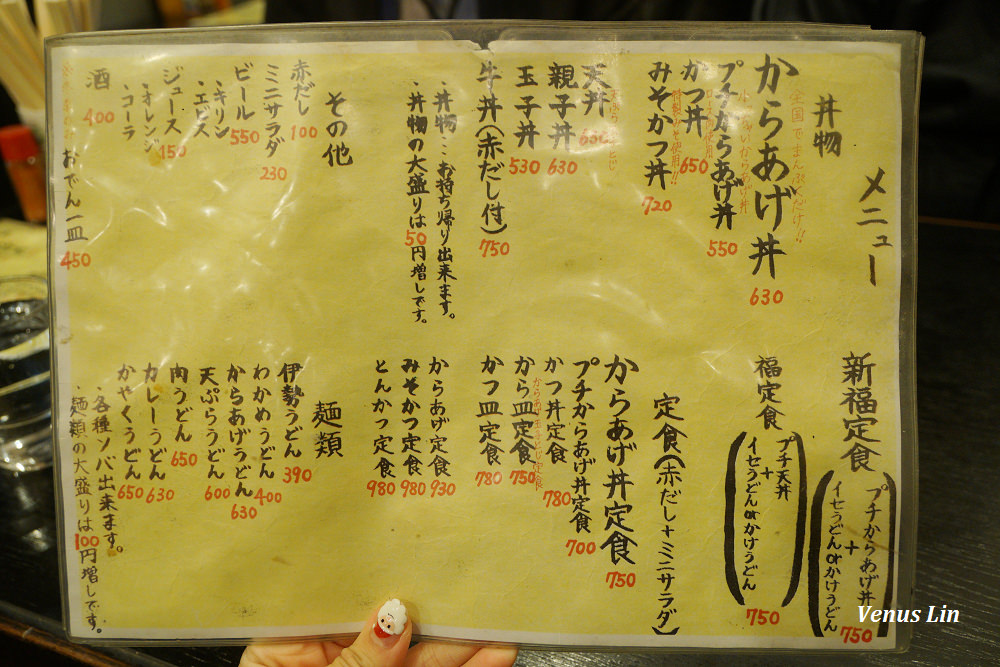 メニュー
丼物
全国でまんぷくだけ!!
からあげ丼 630
プチからあげ丼 550
かつ丼 650
みそかつ丼 720
天丼 630
親子丼 630
玉子丼 530
牛丼(赤だし付) 750
・丼物…お持ち帰り出来ます。
・丼物の大盛りは50円増しです。
その他
赤だし 100
ミニサラダ 230
ビール 550
・キリン
・エビス
ジュース 150
・オレンジ
・コーラ
酒 400
おでん一皿 450
新福定食
プチからあげ丼
+
イセうどんorかけうどん
750
福定食
プチ天丼
+
イセうどんorかけうどん
750
定食(赤だし+ミニサラダ)
からあげ丼定食 750
プチからあげ丼定食 700
かつ丼定食 780
から皿定食 750
かつ皿定食 780
からあげ定食 930
みそかつ定食 980
とんかつ定食 980
麺類
伊勢うどん 390
わかめうどん 400
からあげうどん 630
天ぷらうどん 600
肉うどん 650
カレーうどん 630
かやくうどん 650
・各種ソバ出来ます。
・麺類の大盛りは100円増しです。
Venus Lin